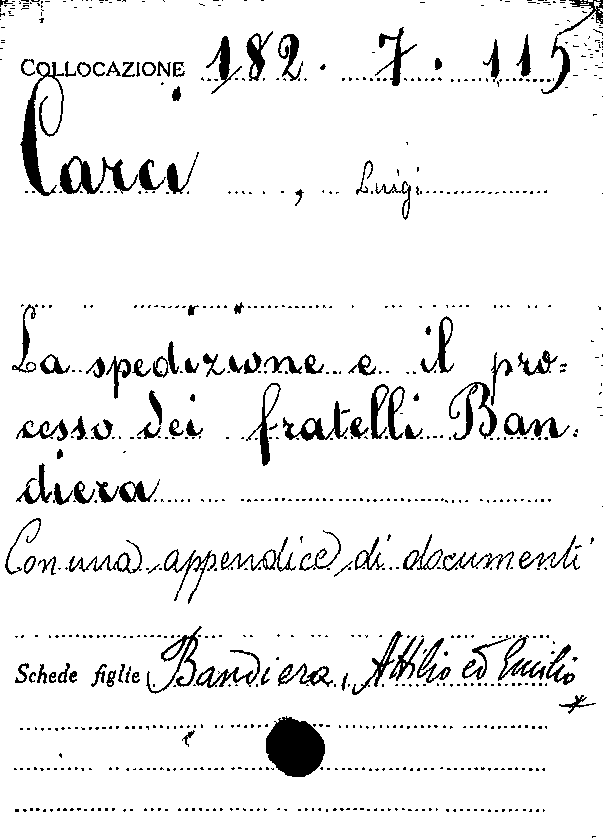 COLLOCAZIONE 182. 7. 115
Carci, Luigi
La spedizione e il pro=
cesso dei fratelli Ban=
diera
Con una appendice di documenti
Schede figlie Bandiera, Attilio ed Emilio
*